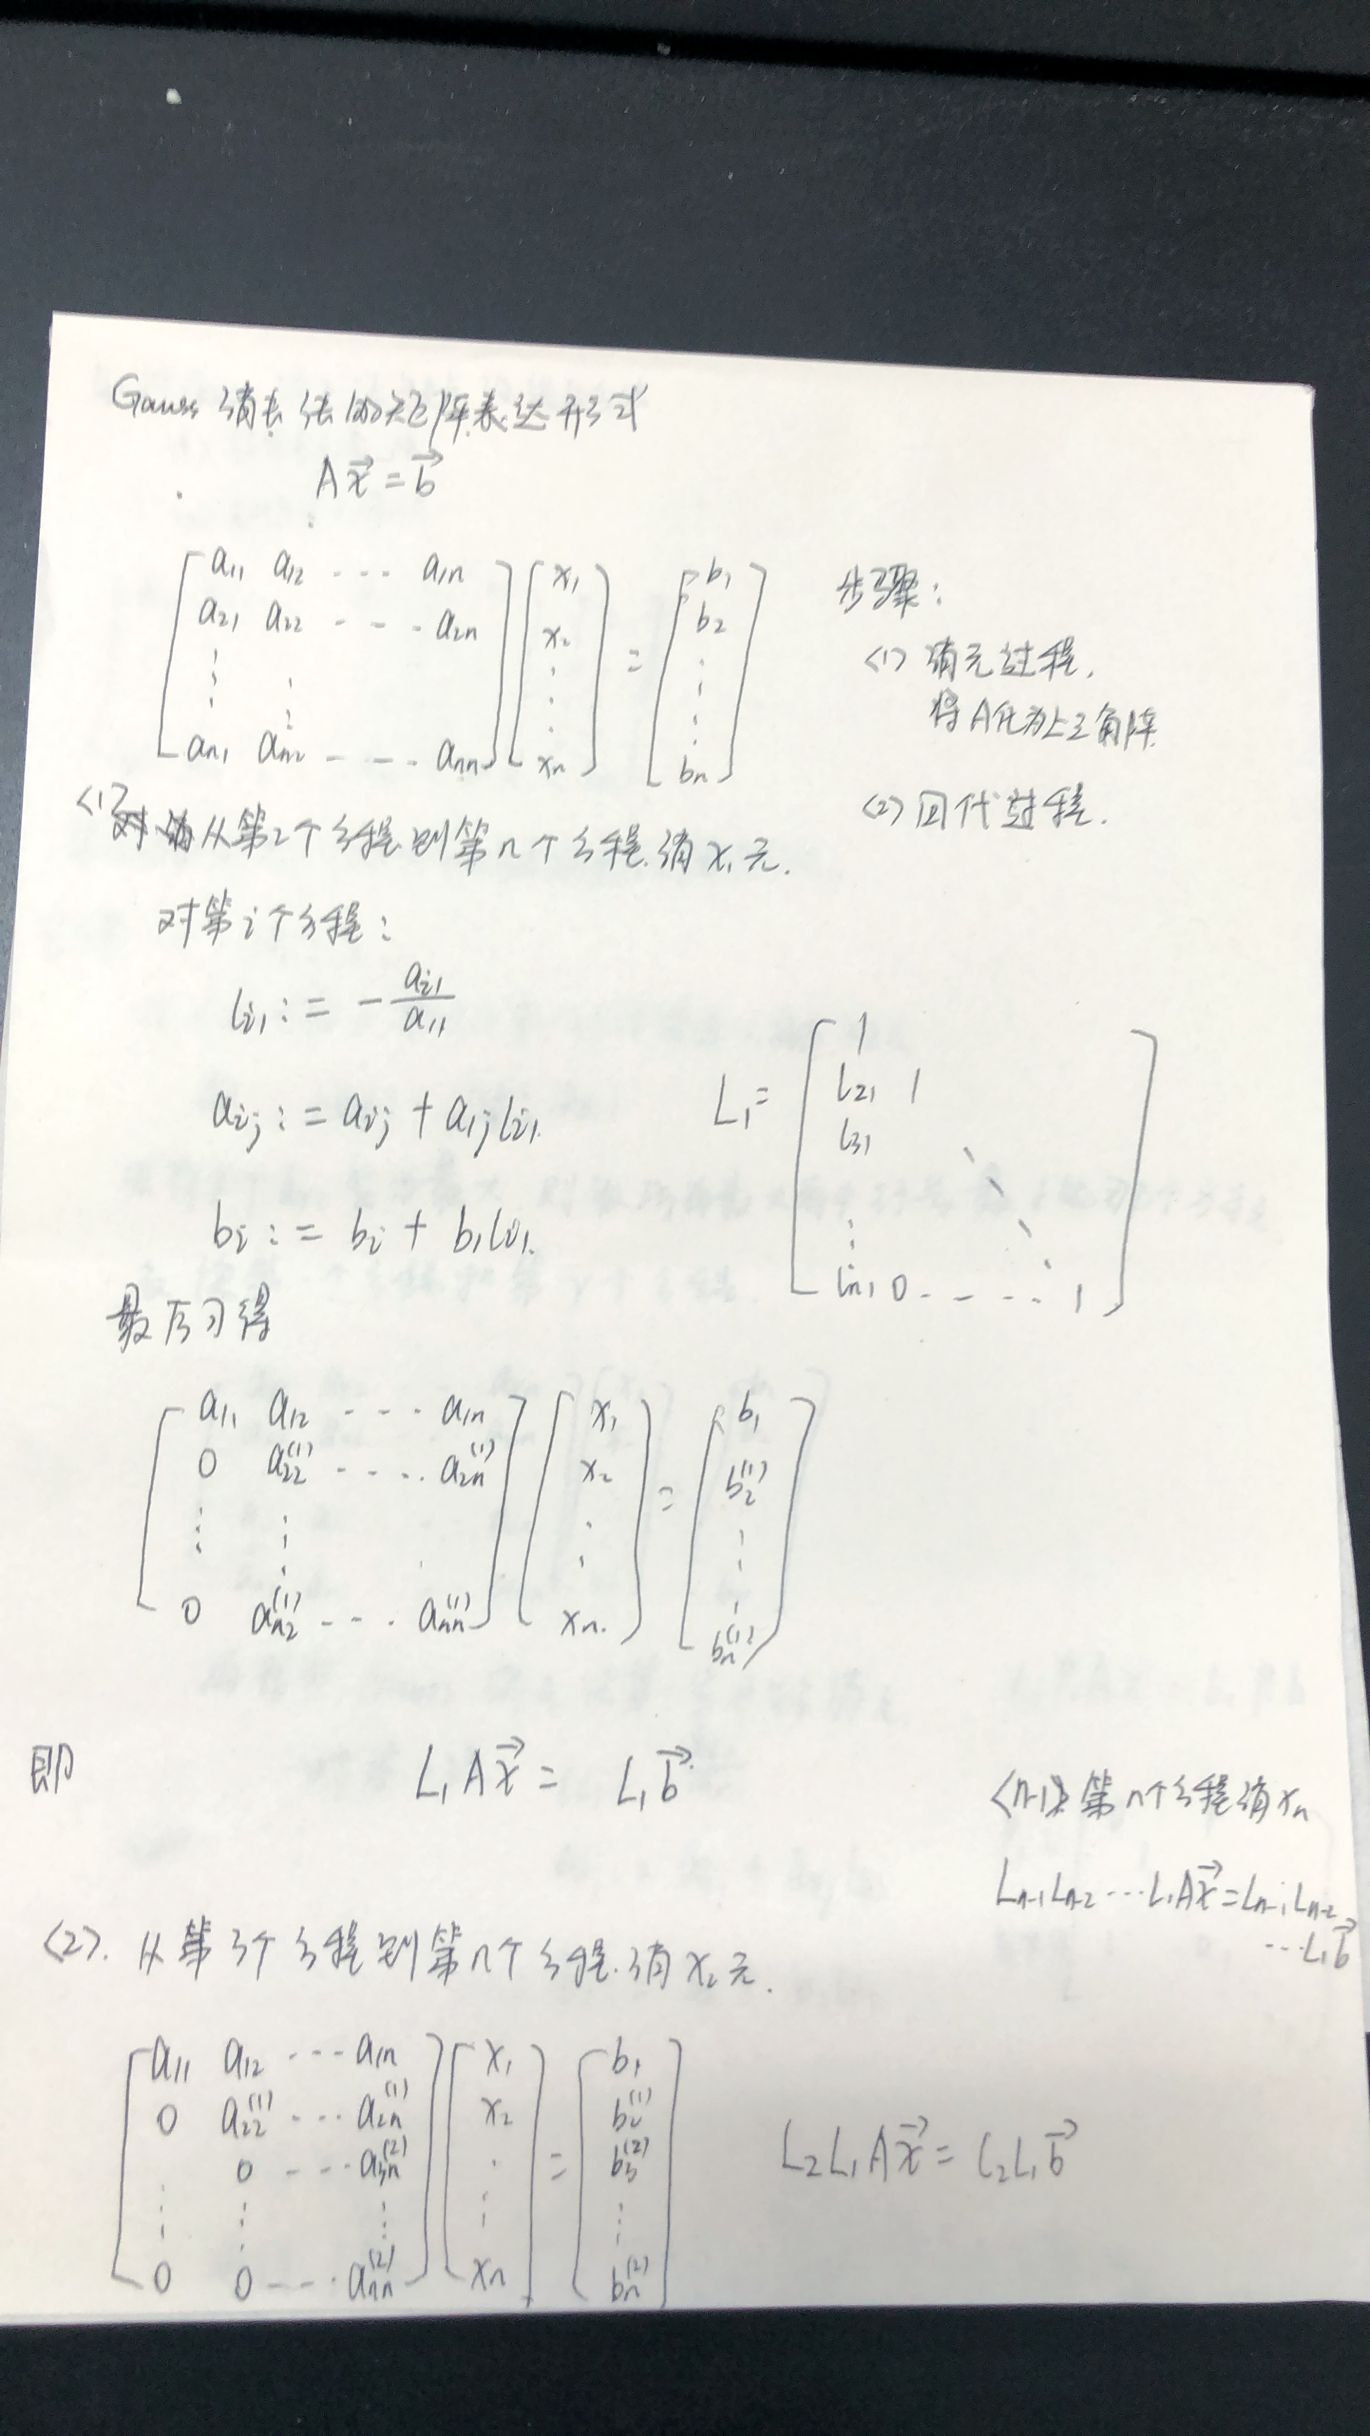 Gauss 消去法的矩阵表达形式
A\vec{x} = \vec{b}
\begin{bmatrix} a_{11} & a_{12} & \cdots & a_{1n} \\ a_{21} & a_{22} & \cdots & a_{2n} \\ \vdots & \vdots & & \\ a_{n1} & a_{n2} & \cdots & a_{nn} \end{bmatrix} \begin{bmatrix} x_1 \\ x_2 \\ \vdots \\ x_n \end{bmatrix} = \begin{bmatrix} b_1 \\ b_2 \\ \vdots \\ b_n \end{bmatrix}
步骤:
<1> 消元过程,
将A化为上三角阵
<2> 回代过程.
<1> 从第2个方程到第n个方程消x_1元.
对第i个方程:
l_{i1} := -\frac{a_{i1}}{a_{11}}
a_{ij} := a_{ij} + a_{1j}l_{i1}.
b_i := b_i + b_1l_{i1}.
L_1 = \begin{bmatrix} 1 & & & \\ l_{21} & 1 & & \\ l_{31} & & \ddots & \\ \vdots & & & \ddots \\ l_{n1} & 0 & \cdots & 1 \end{bmatrix}
最后可得
\begin{bmatrix} a_{11} & a_{12} & \cdots & a_{1n} \\ 0 & a_{22}^{(1)} & \cdots & a_{2n}^{(1)} \\ \vdots & \vdots & & \\ 0 & a_{n2}^{(1)} & \cdots & a_{nn}^{(1)} \end{bmatrix} \begin{bmatrix} x_1 \\ x_2 \\ \vdots \\ x_n \end{bmatrix} = \begin{bmatrix} b_1 \\ b_2^{(1)} \\ \vdots \\ b_n^{(1)} \end{bmatrix}
即 L_1A\vec{x} = L_1\vec{b}
<2>. 从第3个方程到第n个方程.消x_2元.
\begin{bmatrix} a_{11} & a_{12} & \cdots & a_{1n} \\ 0 & a_{22}^{(1)} & \cdots & a_{2n}^{(1)} \\ & 0 & \cdots & a_{3n}^{(2)} \\ \vdots & \vdots & & \vdots \\ 0 & 0 & \cdots & a_{nn}^{(2)} \end{bmatrix} \begin{bmatrix} x_1 \\ x_2 \\ \vdots \\ x_n \end{bmatrix} = \begin{bmatrix} b_1 \\ b_2^{(1)} \\ b_3^{(2)} \\ \vdots \\ b_n^{(2)} \end{bmatrix}
L_2L_1A\vec{x} = L_2L_1\vec{b}
<n-1> 第n个方程消x_n
L_{n-1}L_{n-2}\cdots L_1A\vec{x} = L_{n-1}L_{n-2}
\cdots L_1\vec{b}